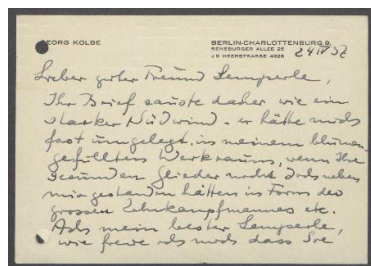 GEORG KOLBE
BERLIN-CHARLOTTENBURG 9
SENSBURGER ALLEE 25
J 9 HEERSTRASSE 4028
Lieber guter Freund Lemperle,
Ihr Brief sauste daher wie ein
starker Südwind - er hätte mich
fast umgelegt, in meinem blumen-
gefüllten Werkraum, wenn Ihre
Glieder nicht dort neben
mir gestanden hätten in Form des
grossen Zehnkampfmannes etc.
Ach mein bester Lemperle,
wie freue ich mich dass Sie